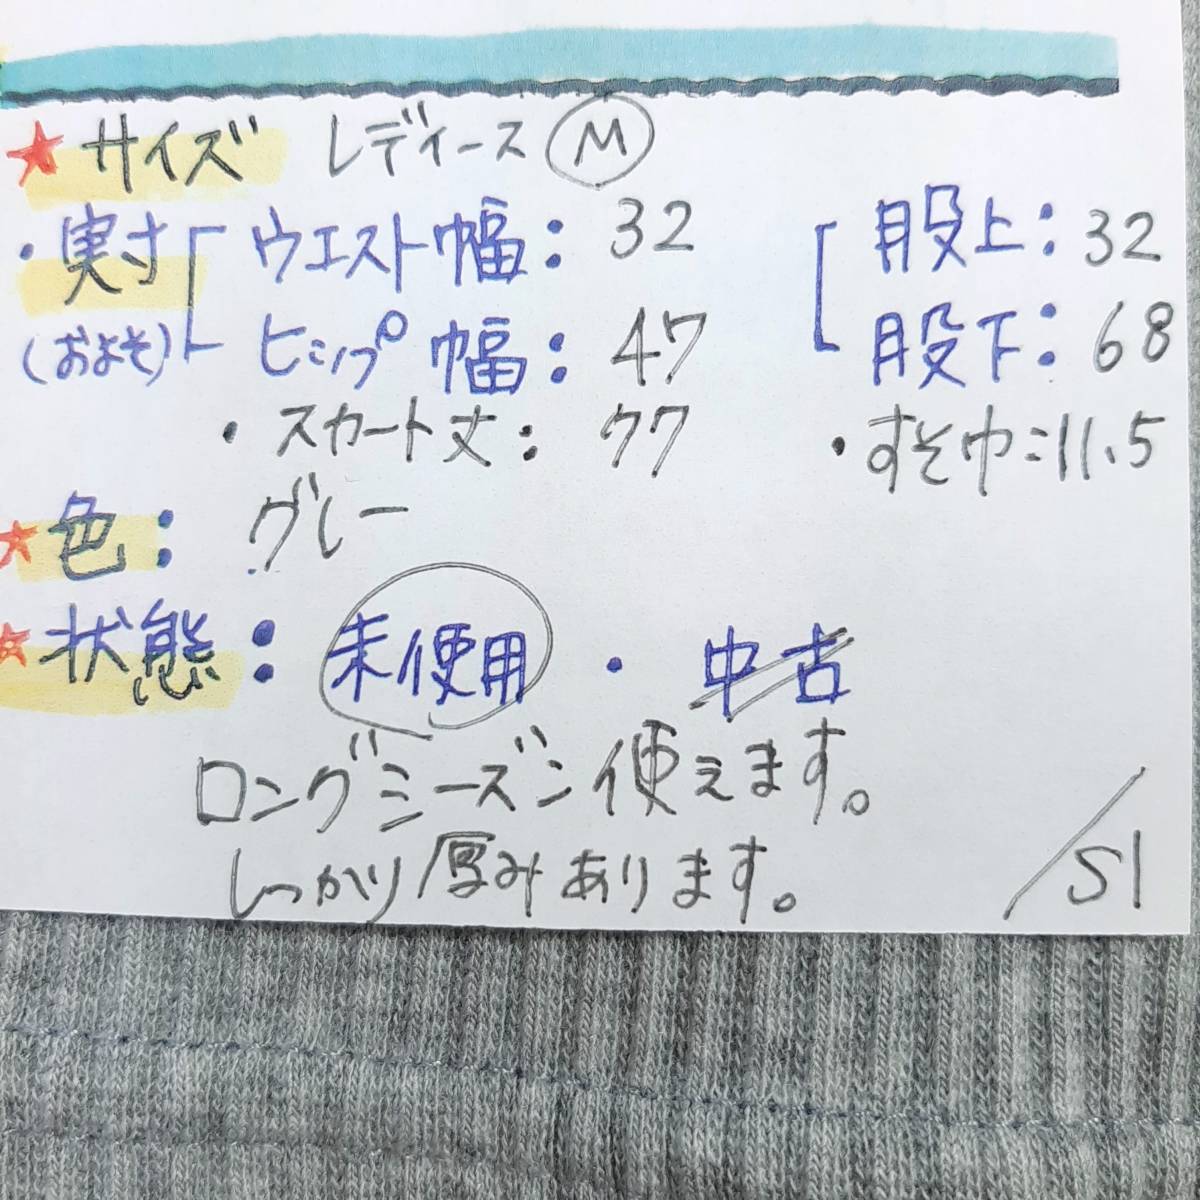 ★サイズ レディース Ⓜ
・実寸 ウエスト幅：32 股上：32
(およそ) ヒップ幅：47 股下：68
・スカート丈：77 ・すそ巾：11.5
★色： グレー
★状態：未使用・中古
ロングシーズン使えます。
しっかり厚みあります。
／S1